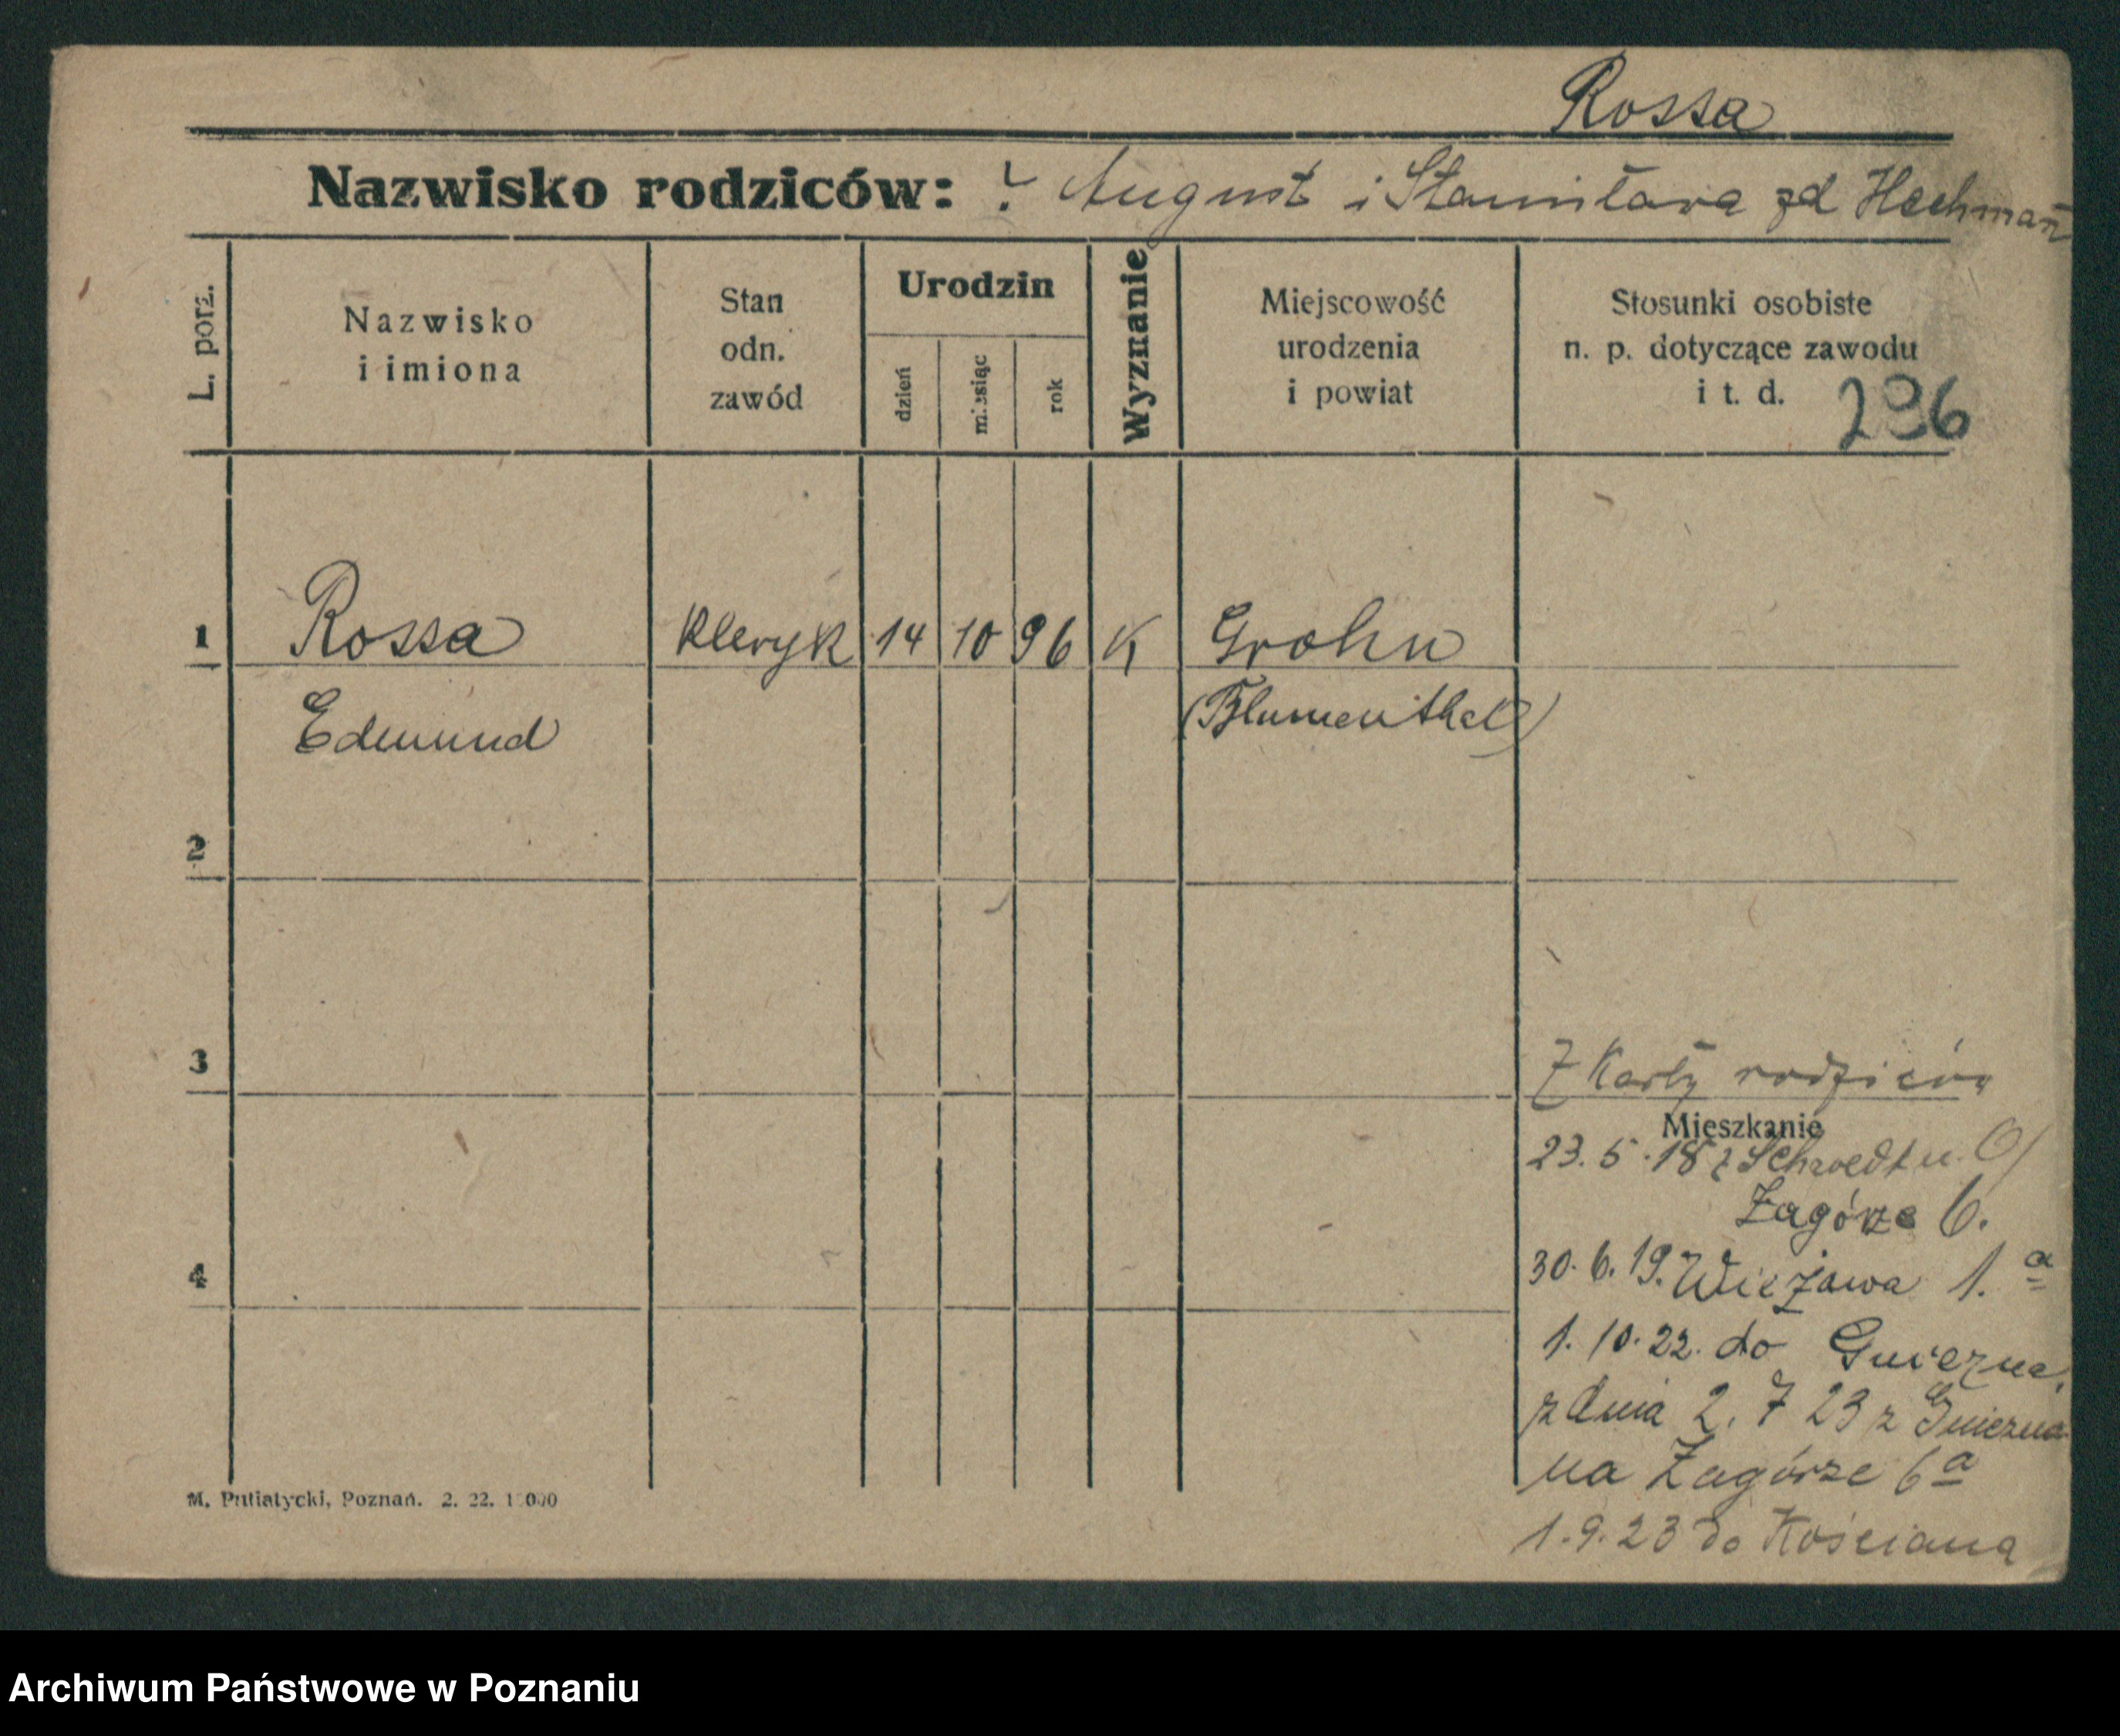 Rossa
Nazwisko rodziców: ? August i Stanisława zd Hechmań
L. porz.
Nazwisko
i imiona
Stan
odn.
zawód
Urodzin
dzień
miesiąc
rok
Wyznanie
Miejscowość
urodzenia
i powiat
Stosunki osobiste
n. p. dotyczące zawodu
i t. d.
296
1 Rossa Kleryk 14 10 96 K Grohn
Edmund (Blumenthal)
2
3
Z Karty rodziców
Mieszkanie
23. 5. 18 z Schwedt u. O/
Zagórze 6.
4
30. 6. 19. Wieżawa 1.a
1. 10. 22. do Gniezna,
z dnia 2. 7 23 z Gniezna
na Zagórze 6a
M. Putiatycki, Poznań. 2. 22.
1. 9. 23 do Kościana
Archiwum Państwowe w Poznaniu